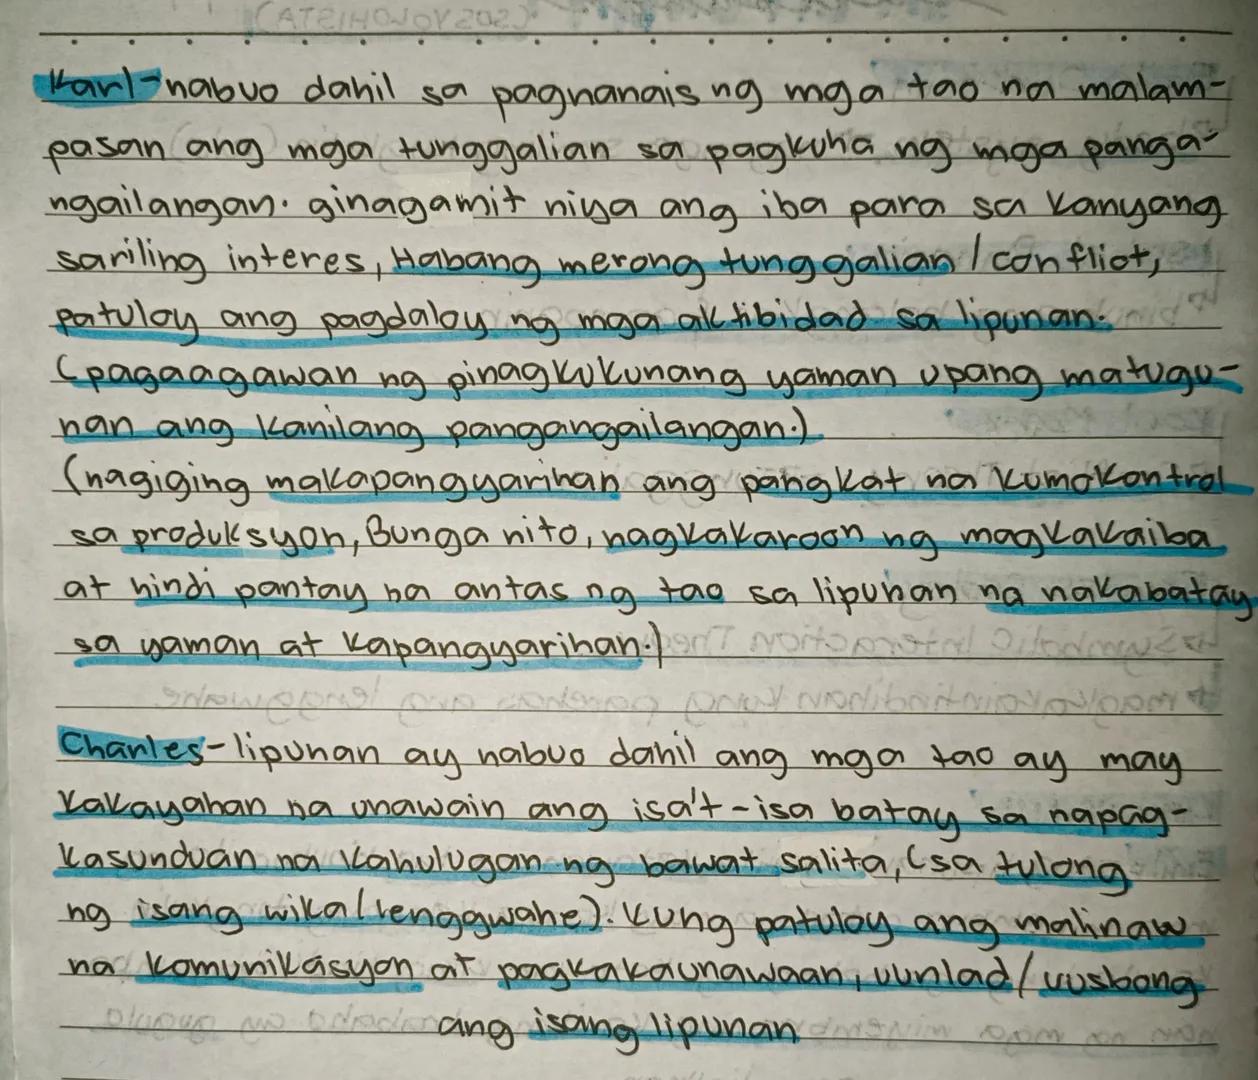 Karl-nabuo dahil sa pagnanais ng mga tao na malam-
pasan ang mga tunggalian sa pagkuha ng mga panga-
ngailangan. ginagamit niya ang iba para sa kanyang
sariling interes, Habang merong tunggalian / confliot,
patuloy ang pagdaloy ng mga aktibidad sa lipunan.
(pagaagawan ng pinagkukunang yaman upang matugu-
nan ang kanilang pangangailangan.)
(nagiging makapangyarihan ang pangkat na kumokontrol
sa produksyon, Bunga nito, nagkakaroon ng magkakaiba
at hindi pantay na antas ng tao sa lipunan na nakabatay
sa yaman at kapangyarihan.)
Charles-lipunan ay nabuo dahil ang mga tao ay may
kakayahan na unawain ang isa't-isa batay sa napag-
kasunduan na kahulugan ng bawat salita, (sa tulong
ng isang wika/lenggwahe). kung patuloy ang malinaw
na komunikasyon at pagkakaunawaan, uunlad/uusbong
ang isang lipunan